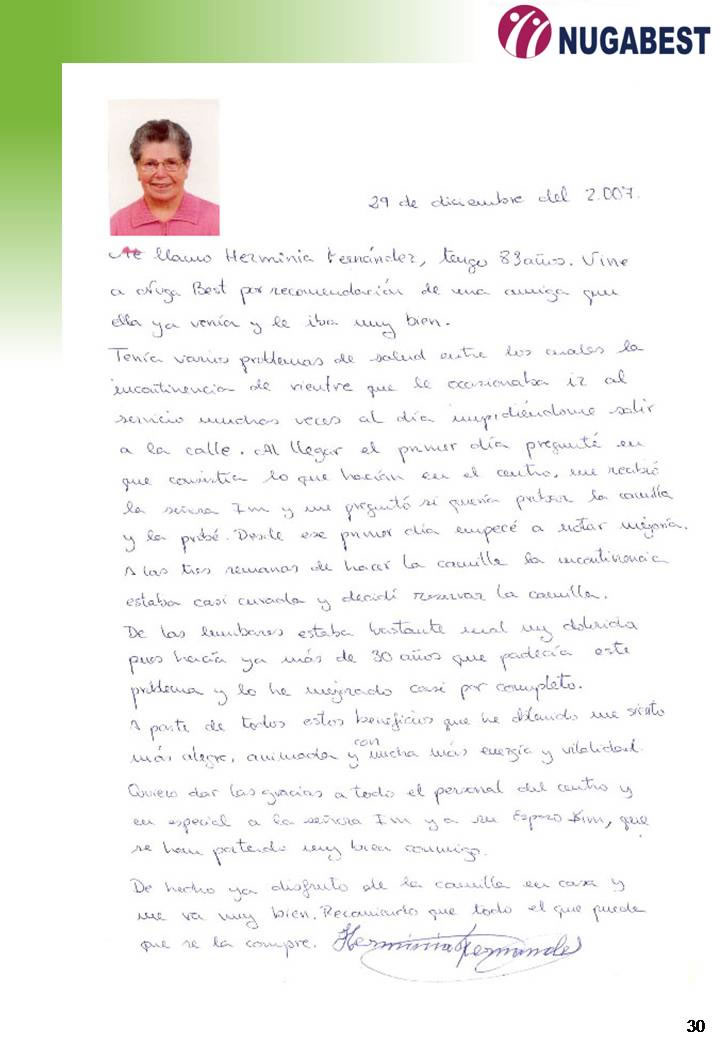 NUGABEST
29 de diciembre del 2.007.
Me llamo Herminia Fernández, tengo 83 años. Vine
a Nuga Best por recomendación de una amiga que
ella ya venía y le iba muy bien.
Tenía varios problemas de salud entre los cuales la
incontinencia de vientre que le ocasionaba ir al
servicio muchas veces al día impidiéndome salir
a la calle. Al llegar el primer día pregunté en
que consistía lo que hacían en el centro, me recibió
la señora Im y me preguntó si quería probar la camilla
y la probé. Desde ese primer día empecé a notar mejoría.
A las tres semanas de hacer la camilla la incontinencia
estaba casi curada y decidí reservar la camilla.
De las lumbares estaba bastante mal muy dolorida
pues hacía ya más de 30 años que padecía este
problema y lo he mejorado casi por completo.
A parte de todos estos beneficios que he obtenido me siento
más alegre, animada y con mucha más energía y vitalidad.
Quiero dar las gracias a todo el personal del centro y
en especial a la señora Im y a su Esposo Kim, que
se han portado muy bien conmigo.
De hecho ya disfruto de la camilla en casa y
me va muy bien. Recomiendo que todo el que pueda
que se la compre. Herminia Fernandes
30